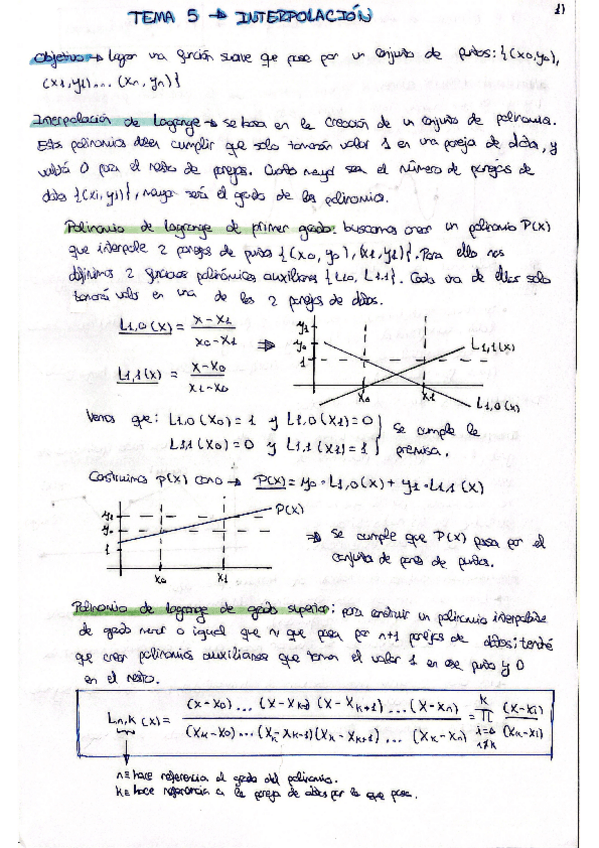 TEMA 5 → INTERPOLACIÓN
1)
Objetivo → lograr una función suave que pase por un conjunto de puntos: {(x0,y0),
(x1,y1)... (xn, yn)}
Interpolación de Lagrange → se basa en la creación de un conjunto de polinomios.
Estos polinomios deben cumplir que solo tomarán valor 1 en una pareja de datos, y
valdrá 0 para el resto de parejas. Cuanto mayor sea el número de parejas de
datos {(xi, yi)}, mayor será el grado de los polinomios.
Polinomio de Lagrange de primer grado: buscamos crear un polinomio P(x)
que interpole 2 parejas de puntos {(x0, y0), (x1, y1)}. Para ello nos
definimos 2 funciones polinómicas auxiliares {L1,0, L1,1}. Cada una de ellas solo
tomará valor en una de las 2 parejas de datos.
L1,0 (x) = x-x1 / x0-x1
L1,1 (x) = x-x0 / x1-x0
⇒
y1
y0
1
x0
x1
L1,1(x)
L1,0(x)
Vemos que: L1,0(x0)=1 y L1,0(x1)=0
L1,1(x0)=0 y L1,1(x1)=1
} Se cumple la
premisa.
Construimos P(x) como → P(x) = y0·L1,0(x) + y1·L1,1(x)
y1
y0
1
x0
x1
P(x)
⇒ Se cumple que P(x) pasa por el
conjunto de pares de puntos.
Polinomio de Lagrange de grado superior: para construir un polinomio
de grado menor o igual que n que pasa por n+1 parejas de datos; tendré
que crear polinomios auxiliares que tomen el valor 1 en ese punto y 0
en el resto.
Ln,k (x) = (x-x0)...(x-xk-1)(x-xk+1)...(x-xn) / (xk-x0)...(xk-xk-1)(xk-xk+1)...(xk-xn) = k ∏ i=0 i≠k (x-xi) / (xk-xi)
n ≡ hace referencia al grado del polinomio.
k ≡ hace referencia a la pareja de datos por la que pasa.